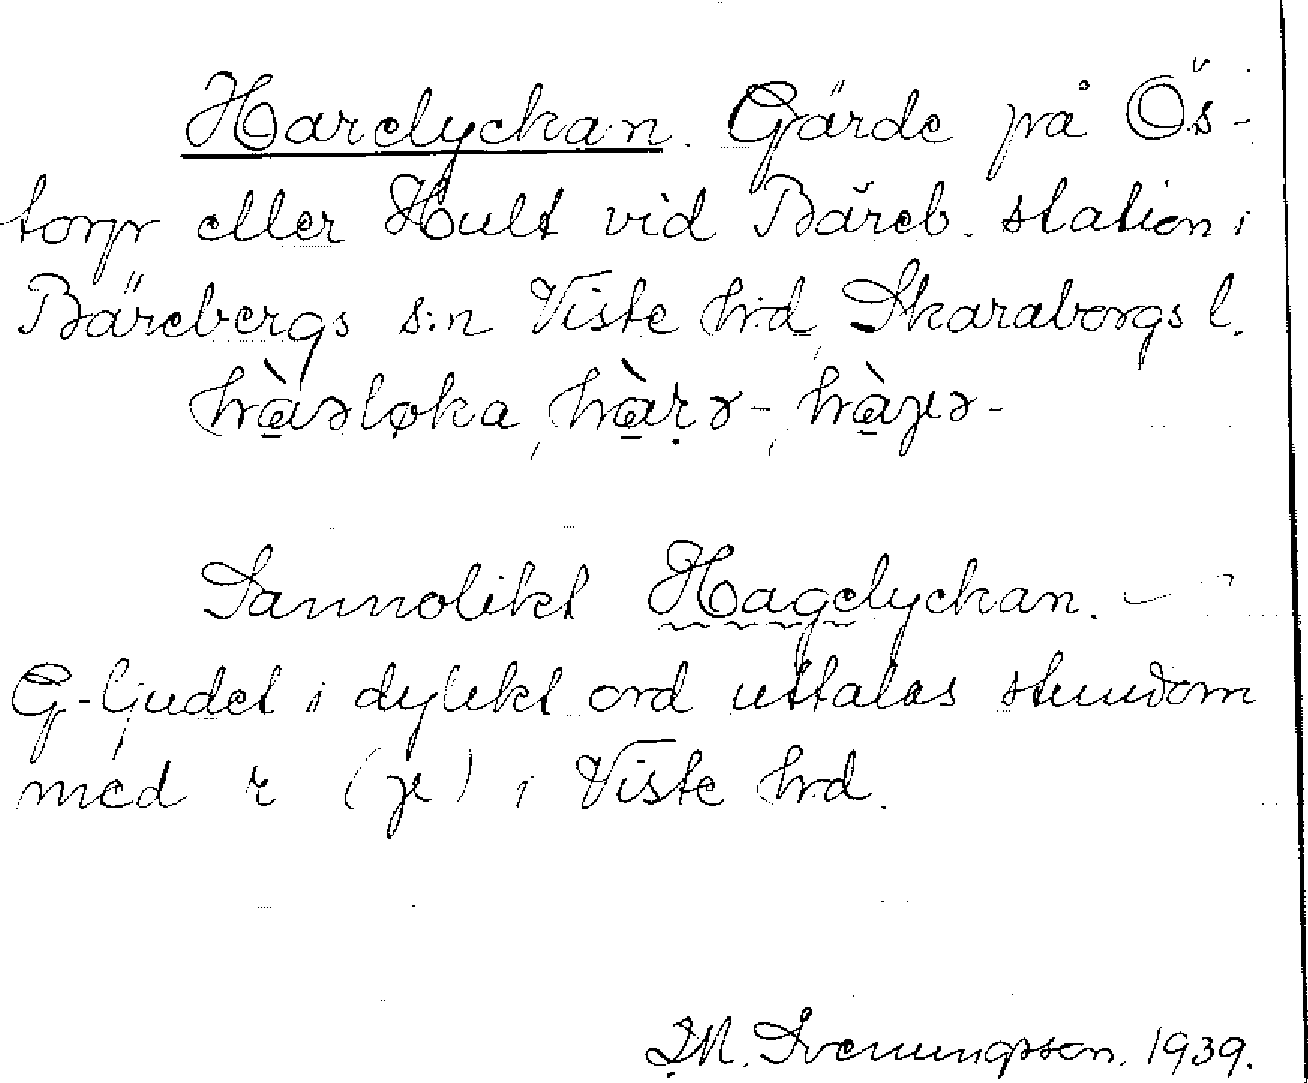 Harelyckan. Gärde på Ös-
torp eller Hult vid Bäreb. station i
Bärebergs s:n Viste hrd, Skaraborgs l.
Sannolikt Hagelyckan. –
G-ljudet i dylikt ord uttalas stundom
med r () i Viste hrd.
Svenungsson. 1939.